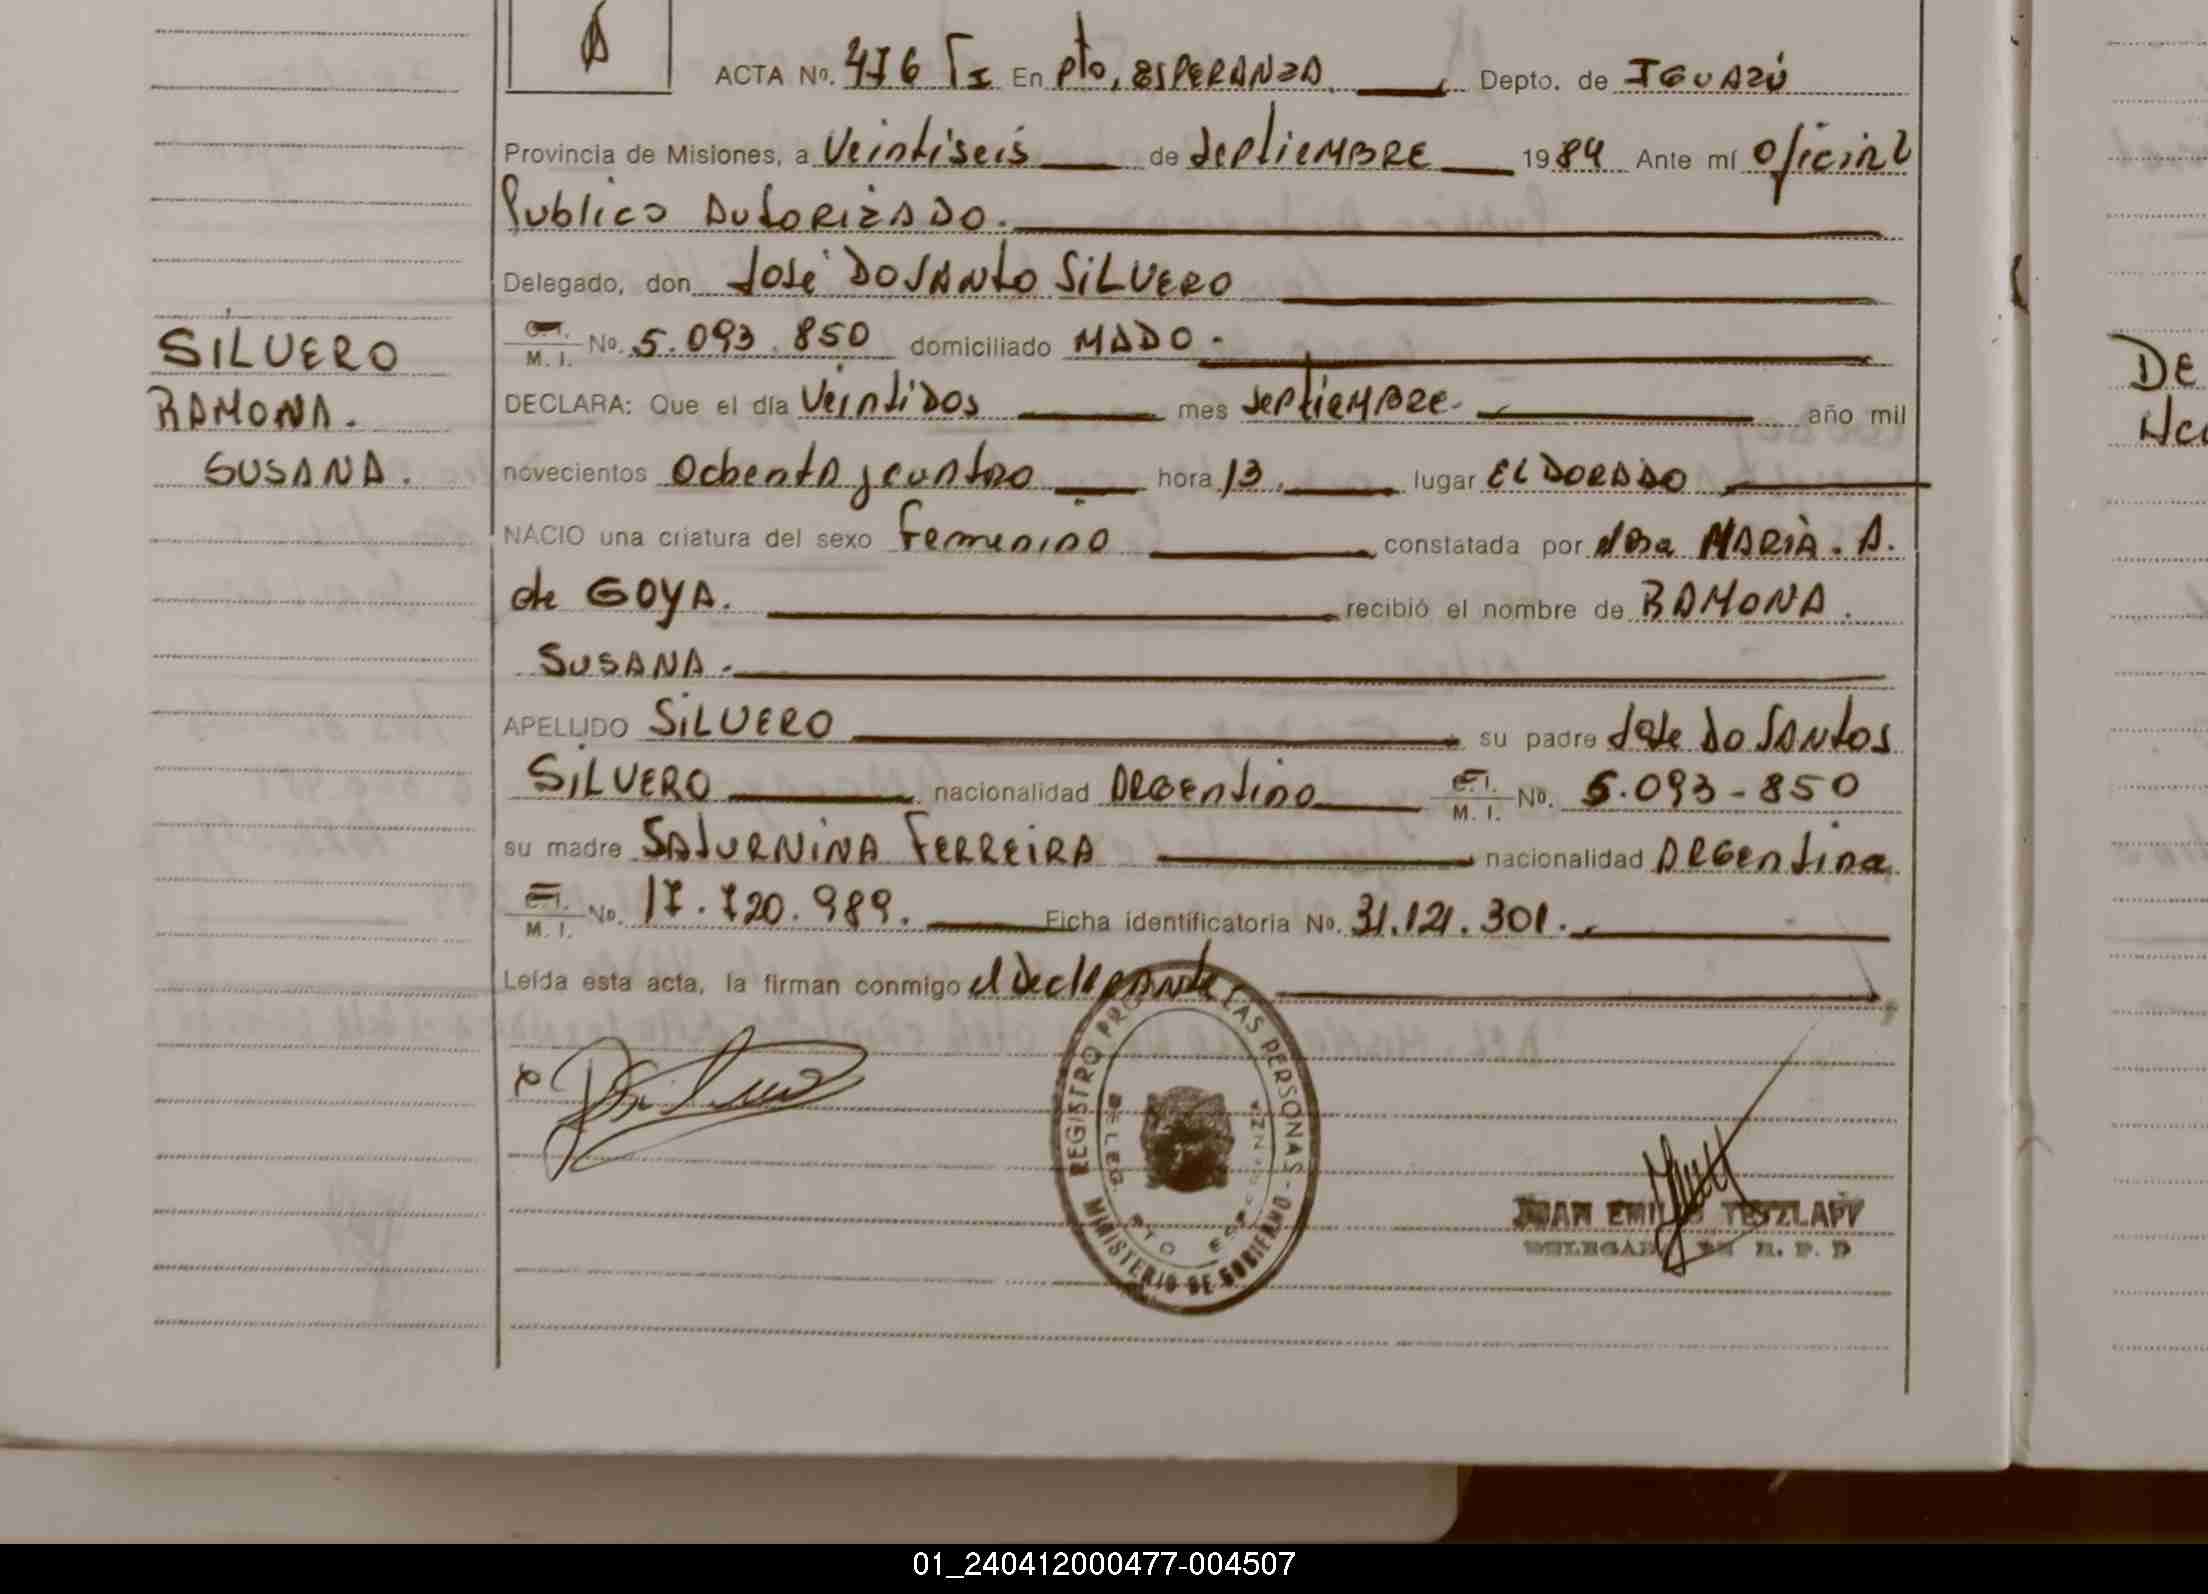 ACTA Nº. 476 TI En Pto, ESPERANZA. Depto. de IGUAZÚ
Provincia de Misiones, a Veintiseis de Septiembre 1984 Ante mí Oficial
Publico Autorizado.
Delegado, don José Dosanto Silvero
C.I. M.I. No. 5.093.850 domiciliado MADO.
SILVERO
RAMONA.
SUSANA.
DECLARA: Que el día Veintidos mes Septiembre. año mil
novecientos Ochenta y cuatro hora 13. lugar ELDORADO
NACIO una criatura del sexo Femenino constatada por dora MARIA. A.
de GOYA. recibió el nombre de RAMONA.
SUSANA.
APELLIDO SILVERO su padre Jose Do Santos
SILVERO nacionalidad Argentino C.I. M.I. Nº. 5.093-850
su madre SATURNINA FERREIRA nacionalidad Argentina
C.I. M.I. No. 17.720.989. Ficha identificatoria No. 31.121.301.
Leída esta acta, la firman conmigo el declarante
REGISTRO PROV. DE LAS PERSONAS - MINISTERIO DE GOBIERNO
DELEG. PTO ESPERANZA
JUAN EMILIO TESZLAFF
DELEGADO DE R. P. P
DE
01_240412000477-004507